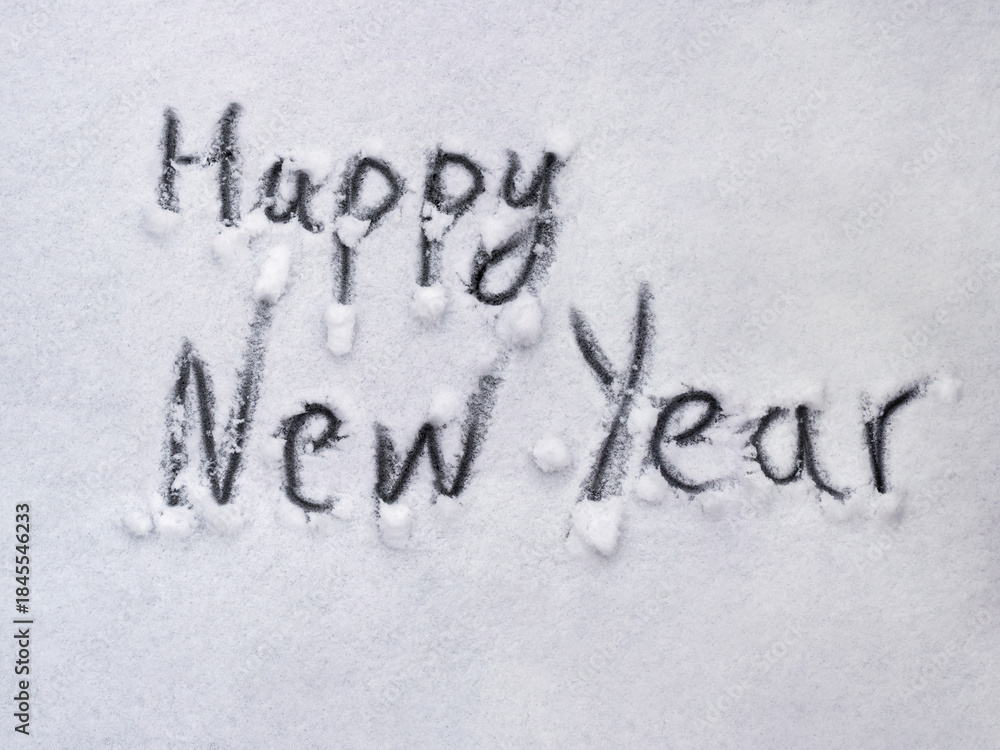 Happy
New Year
Adobe Stock | #1845546233